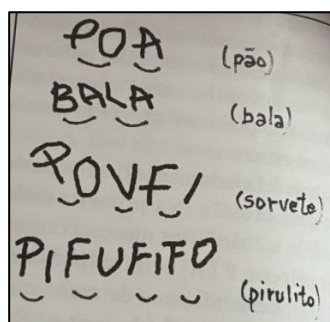 POA (pão)
BALA (bala)
POVFI (sorvete)
PIFUFITO (pirulito)